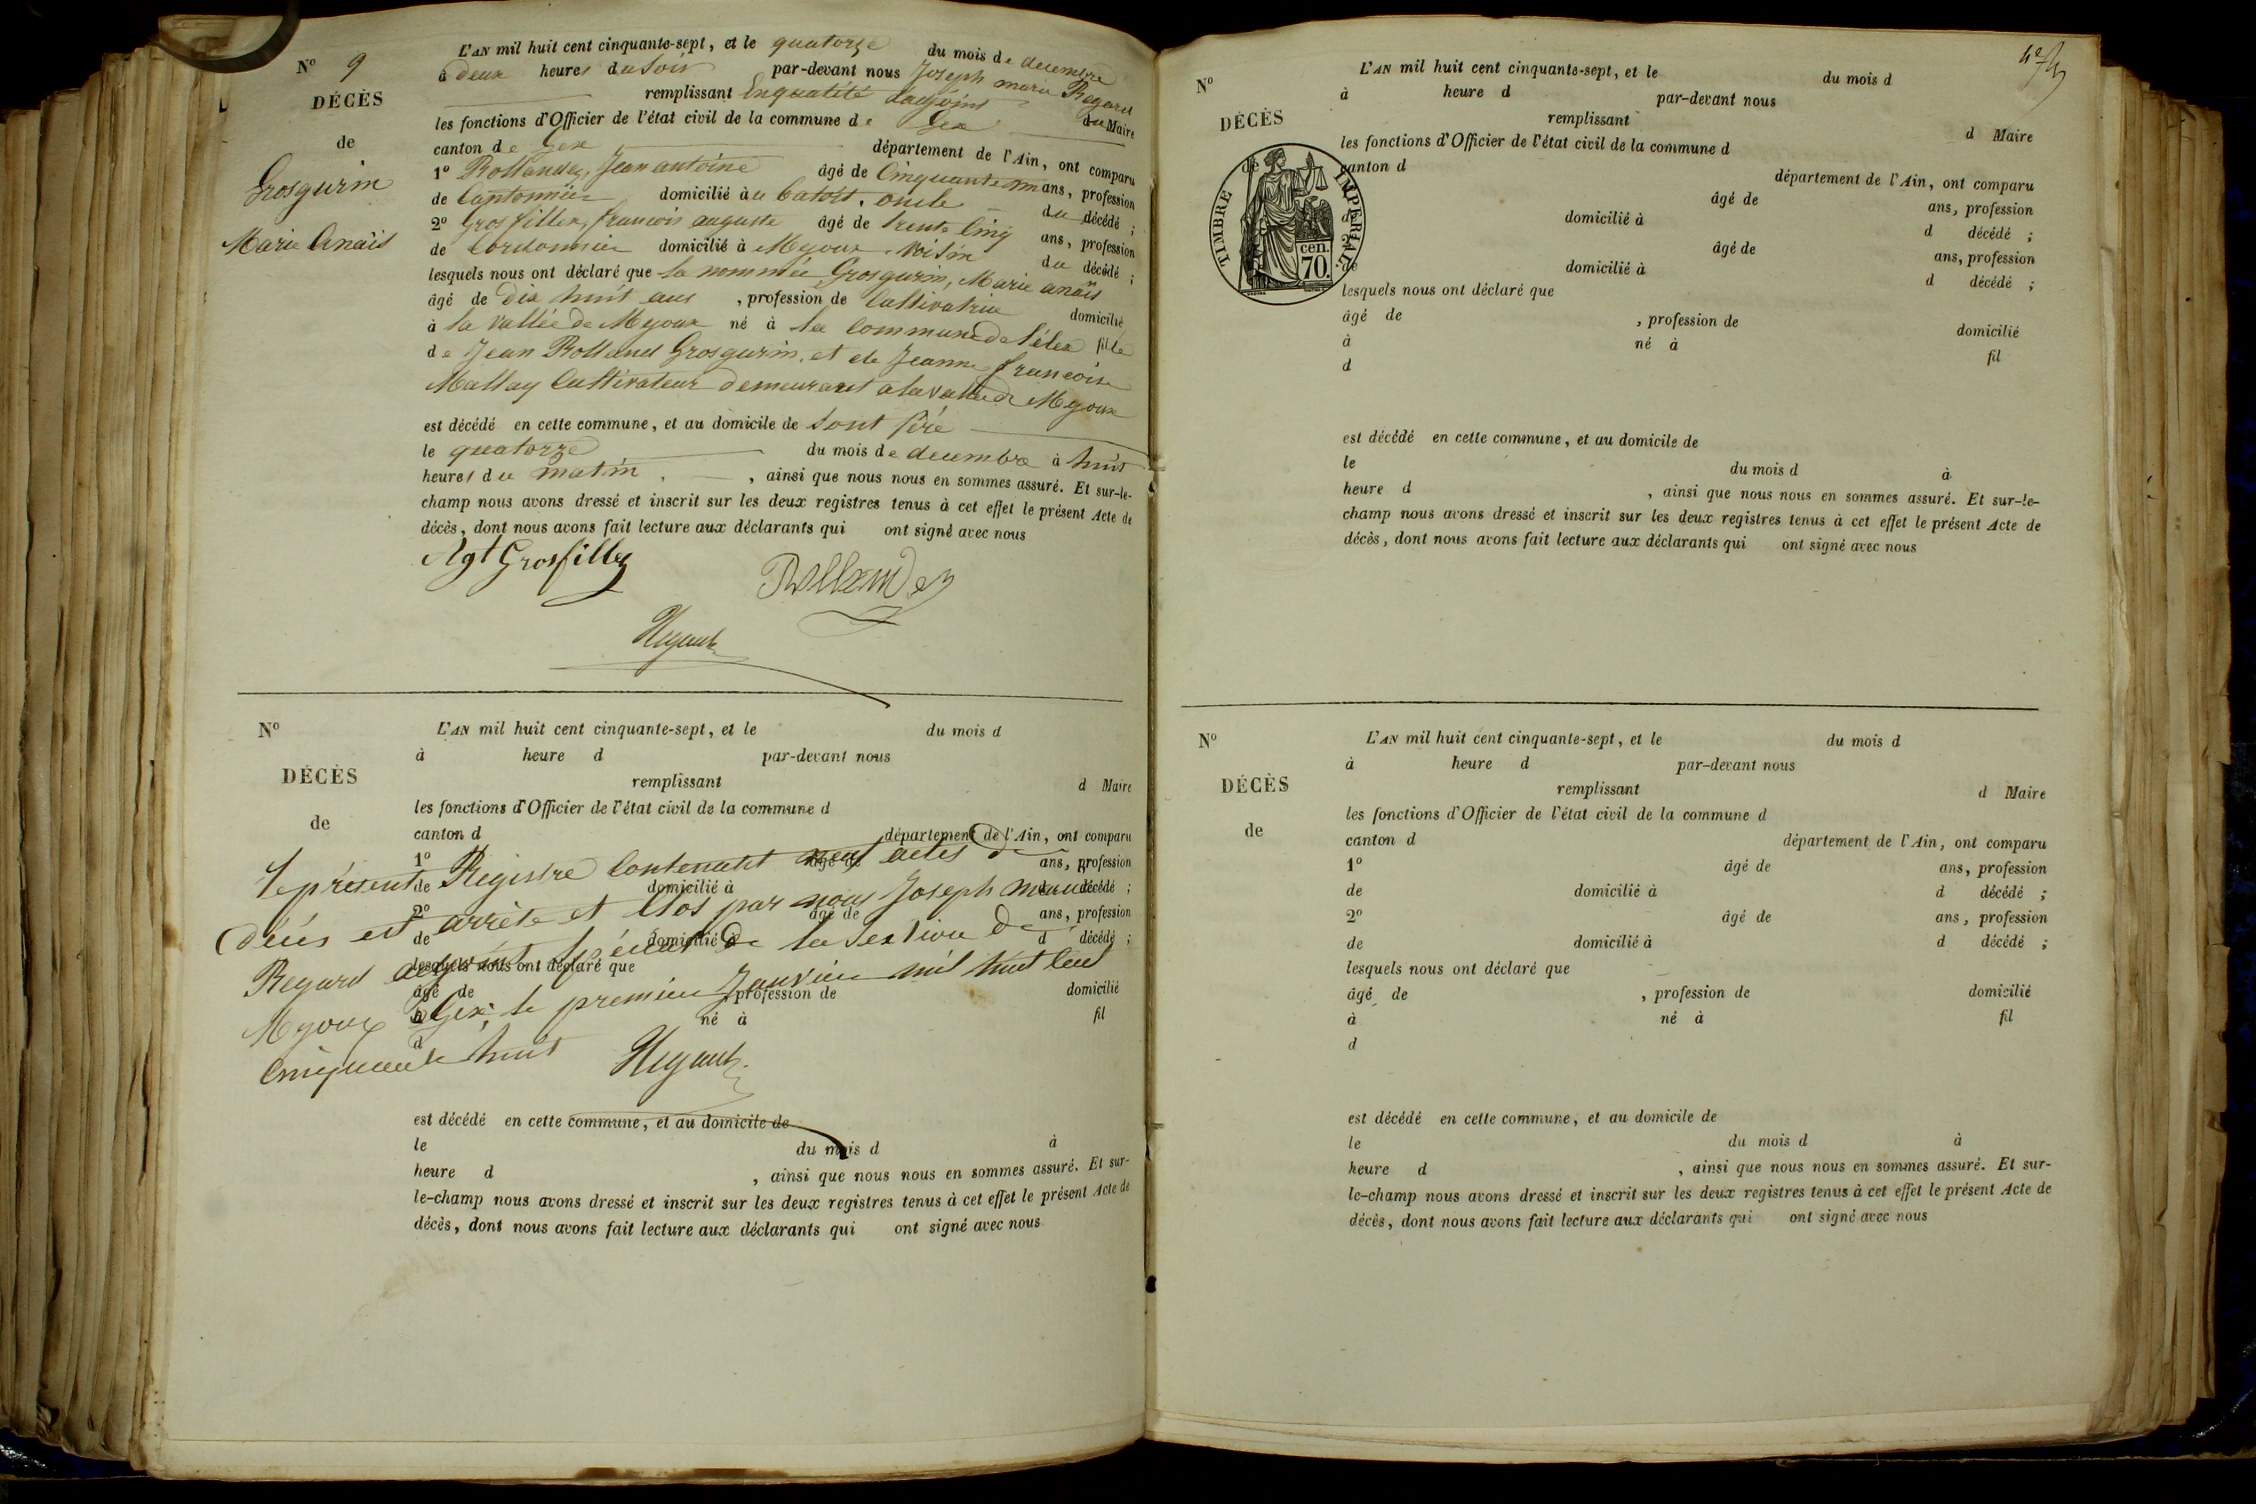 N° 9
DÉCÈS
de
Grosgurin
Marie Anaïs
L'AN mil huit cent cinquante-sept, et le quatorze du mois de decembre
à deux heures du soir par-devant nous Joseph marie Regard
remplissant en qualité d'adjoint du Maire
les fonctions d'Officier de l'état civil de la commune de Gex
canton de Gex département de l'Ain, ont comparu
1° Rollandez, Jean antoine âgé de Cinquante ans, profession
de Cantonnier domicilié à oncle du décédé ;
2° Grosfillex, francois auguste âgé de trente Cinq ans, profession
de Cordonnier domicilié à Myoux, voisin du décédé ;
lesquels nous ont déclaré que la nommée Grosgurin, Marie anaïs
âgé de dix huit ans , profession de Cultivatrice domicilié
à la vallée de Myoux né à la Commune de Lélex fille
de Jean Rolland Grosgurin, et de Jeanne francoise
Mallay Cultivateur demeurant a la vallée de Myoux
est décédé en cette commune, et au domicile de sont père
le quatorze du mois de decembre à huit
heures du matin , ainsi que nous nous en sommes assuré. Et sur-le-
champ nous avons dressé et inscrit sur les deux registres tenus à cet effet le présent Acte de
décès, dont nous avons fait lecture aux déclarants qui ont signé avec nous
Agt Grosfillex Rollandez
Regard
N°
DÉCÈS
de
L'AN mil huit cent cinquante-sept, et le du mois d
à heure d par-devant nous
remplissant d Maire
les fonctions d'Officier de l'état civil de la commune d
canton d département de l'Ain, ont comparu
1° âgé de ans, profession
de domicilié à d décédé ;
2° âgé de ans, profession
de domicilié à d décédé ;
lesquels nous ont déclaré que
âgé de , profession de domicilié
à né à fil
d
Le présent Registre Contenant neuf actes de
décés est arrèté et Clos par nous Joseph marie
Regard adjoint spécial de la Section de
Myoux à Gex, le premier Janvier mil huit Cent
Cinquante huit Regard
est décédé en cette commune, et au domicile de
le du mois d à
heure d , ainsi que nous nous en sommes assuré. Et sur-
le-champ nous avons dressé et inscrit sur les deux registres tenus à cet effet le présent Acte de
décès, dont nous avons fait lecture aux déclarants qui ont signé avec nous
N°
DÉCÈS
de
TIMBRE IMPÉRIAL.
70 cen.
L'AN mil huit cent cinquante-sept, et le du mois d
à heure d par-devant nous
remplissant d Maire
les fonctions d'Officier de l'état civil de la commune d
canton d département de l'Ain, ont comparu
âgé de ans, profession
de domicilié à d décédé ;
2° âgé de ans, profession
de domicilié à d décédé ;
lesquels nous ont déclaré que
âgé de , profession de domicilié
à né à fil
d
est décédé en cette commune, et au domicile de
le du mois d à
heure d , ainsi que nous nous en sommes assuré. Et sur-le-
champ nous avons dressé et inscrit sur les deux registres tenus à cet effet le présent Acte de
décès, dont nous avons fait lecture aux déclarants qui ont signé avec nous
N°
DÉCÈS
de
L'AN mil huit cent cinquante-sept, et le du mois d
à heure d par-devant nous
remplissant d Maire
les fonctions d'Officier de l'état civil de la commune d
canton d département de l'Ain, ont comparu
1° âgé de ans, profession
de domicilié à d décédé ;
2° âgé de ans, profession
de domicilié à d décédé ;
lesquels nous ont déclaré que
âgé de , profession de domicilié
à né à fil
d
est décédé en cette commune, et au domicile de
le du mois d à
heure d , ainsi que nous nous en sommes assuré. Et sur-
le-champ nous avons dressé et inscrit sur les deux registres tenus à cet effet le présent Acte de
décès, dont nous avons fait lecture aux déclarants qui ont signé avec nous